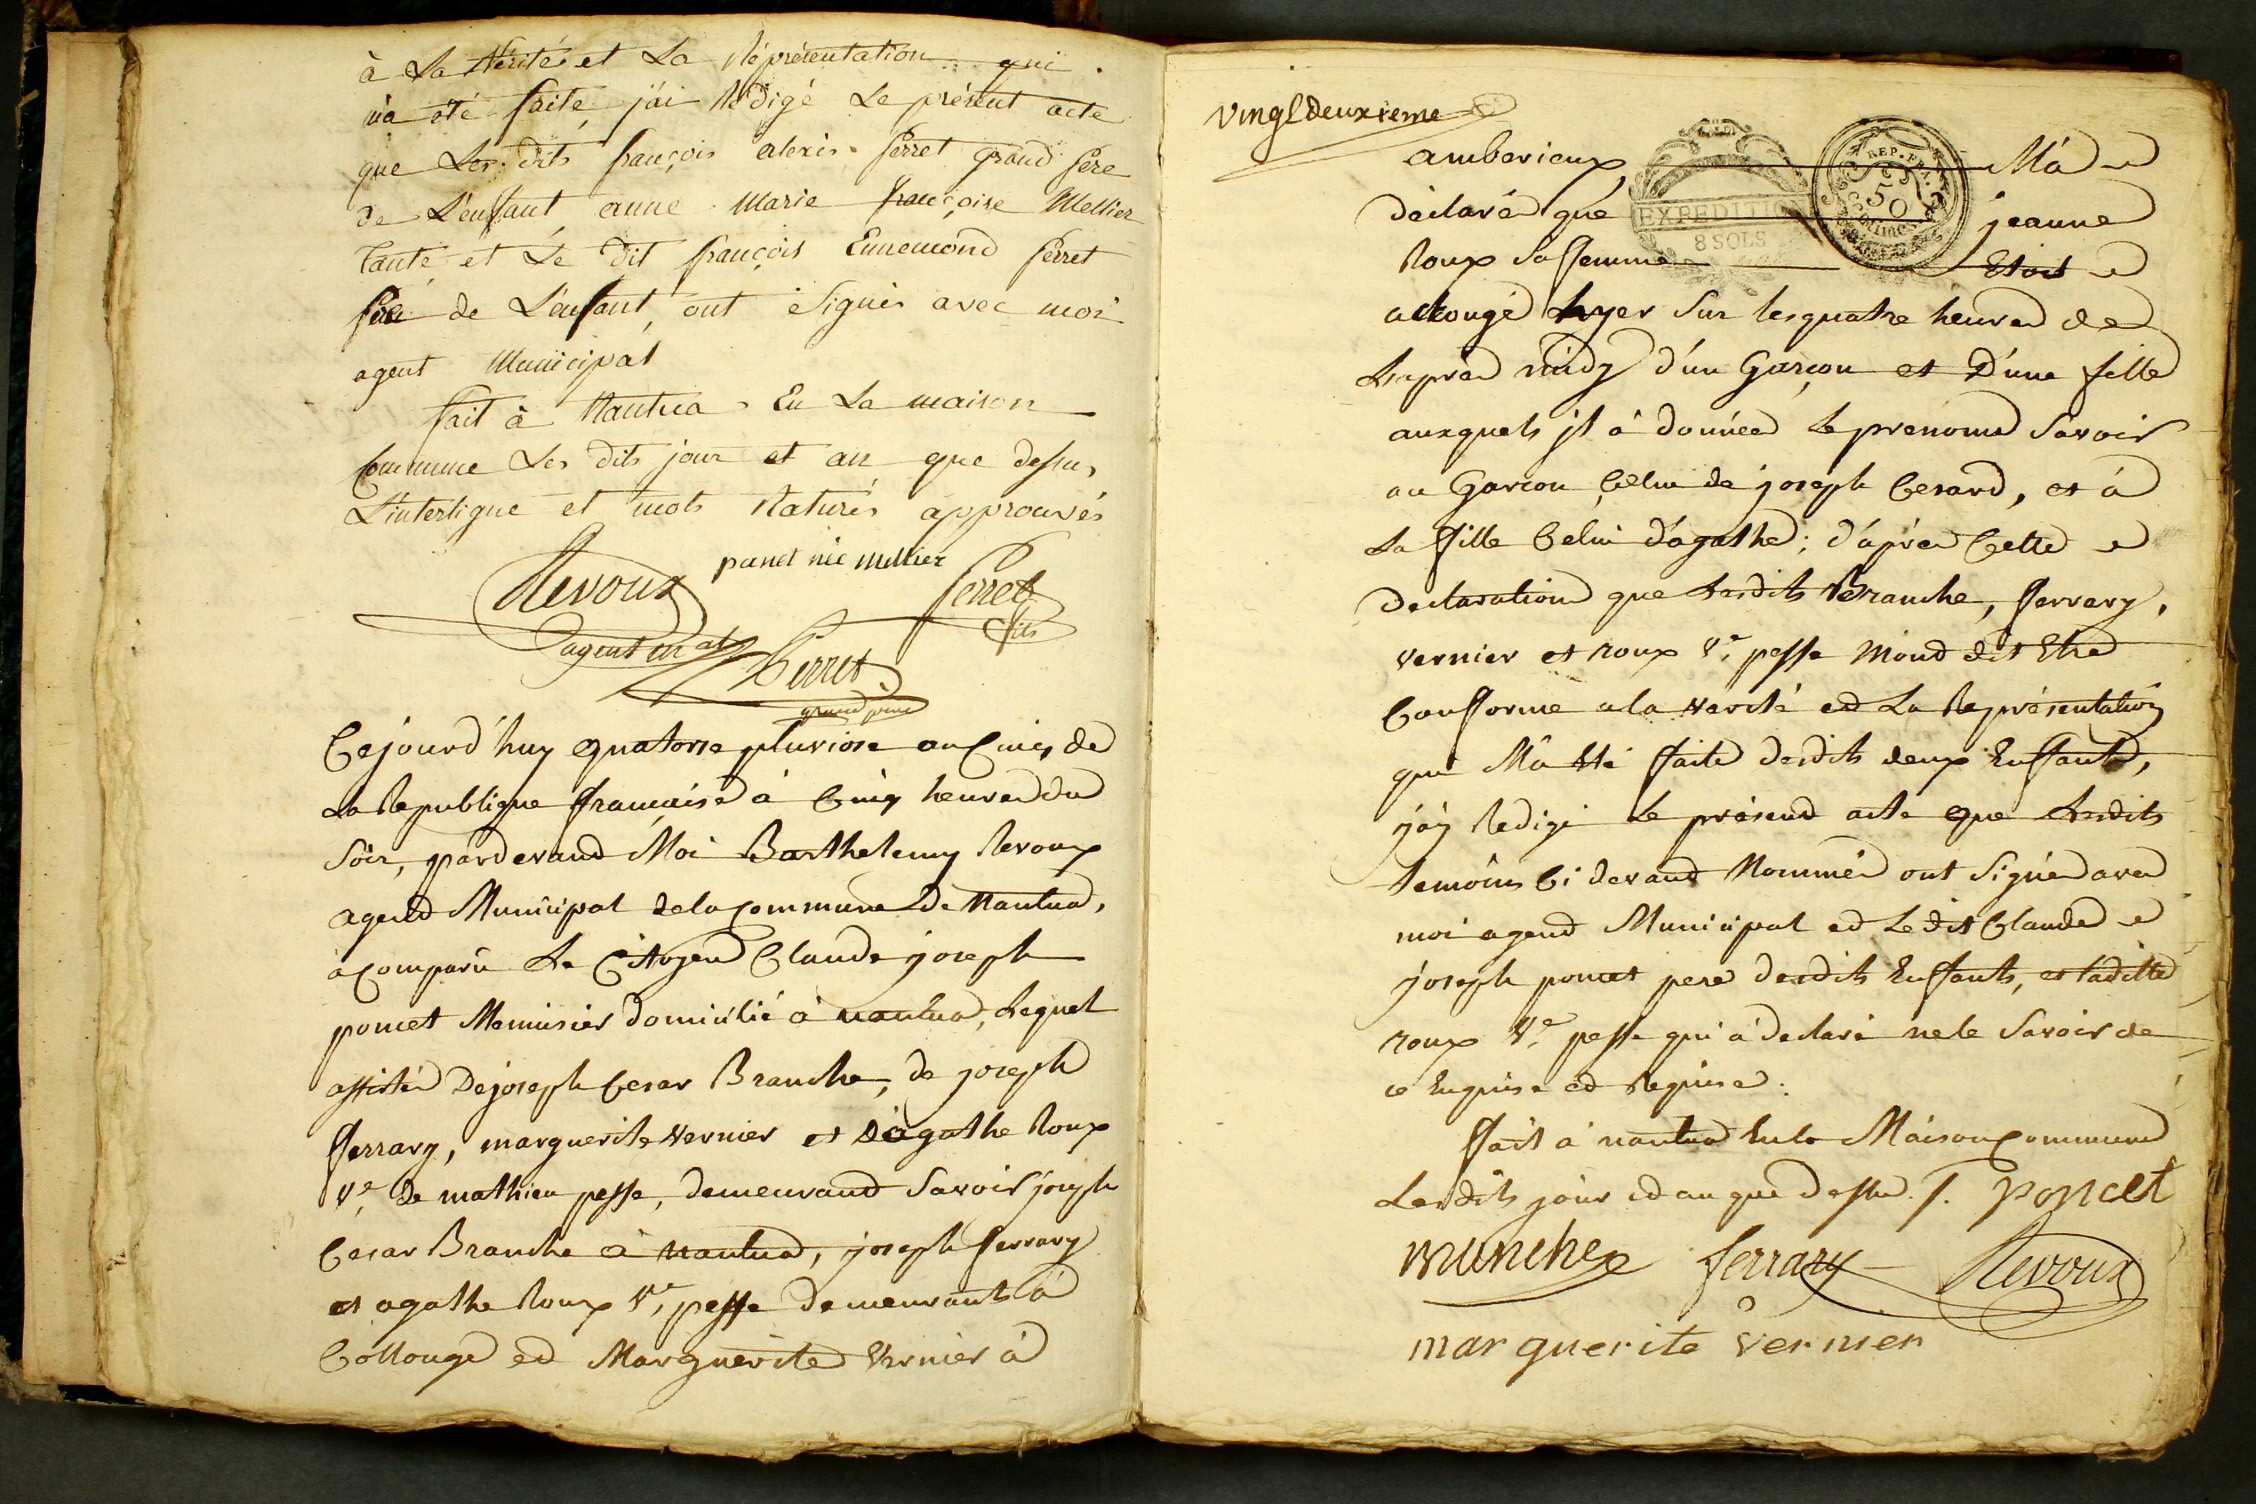 à La Vérité et La Réprésentation qui
m'a été faite, j'ai Rédigé Le présent acte
que Les dits françois alexis Perret grand Pere
de L'enfant, anne Marie françoise Mellier
Tante et Le dit françois Ennemond Perret
Pere de L'enfant, ont Signés avec moi
agent Municipal
fait à Nantua En La maison
Commune Les dits jour et an que dessus,
L'interligne et mots Raturés approuvés
panet née Mellier
Revoux
agent m al
Perret
fils
Perret
grand pere
Cejourd'huy quatorse pluviose an Cinq de
La Republique française à Cinq heures du
Soir, pardevand Moi Barthelemy Revoux
agend Municipal de la Commune De Nantua,
a Comparu Le Citoyen Claude joseph
poncet Menuisier domicilié à nantua, Lequel
assisté De joseph Cesar Branche, de joseph
fferrary, marguerite vernier et D'agathe Roux
Ve. de mathieu pesse, demeurand Savoir joseph
Cesar Branche à nantua, joseph fferrary
et agathe Roux Ve. pesse demeurants à
Collonge ed Marguerite Vernier à
vingtdeuxieme
amberieux, M'a
déclaré que jeanne
Roux Sa ffemme Etoit
EXPEDITION
8 SOLS
REP. FRA.
50
CENTIMES
accouché hyer Sur les quatre heures de
Laprès midy d'un Garçon et D'une fille
auxquels jl à donnée Le prenome Savoir
au Garcon Celui de joseph Cesard, et à
La ffille Celui d'agathe; d'après Cette
Declaration que Lesdits Branche, fferrary,
vernier et roux Ve. pesse Mond dit Etre
Conforme a la verité ed La Représentation
qui M'a été ffaite desdits deux Enffants,
j'ay Redigé Le présend acte que Lesdits
temoins Ci devand Nommés ont Signés avec
moi agend Municipal ed Ledit Claude
joseph poncet pere desdits Enffants, et laditte
roux Ve. pesse qui à declaré ne le Savoir de
ce Enquise ed Requise.
ffait à nantua En la Maison Commune
Lesdits jour ed an que dessus. J. poncet
Branche ferrary Revoux
marguerite vernier